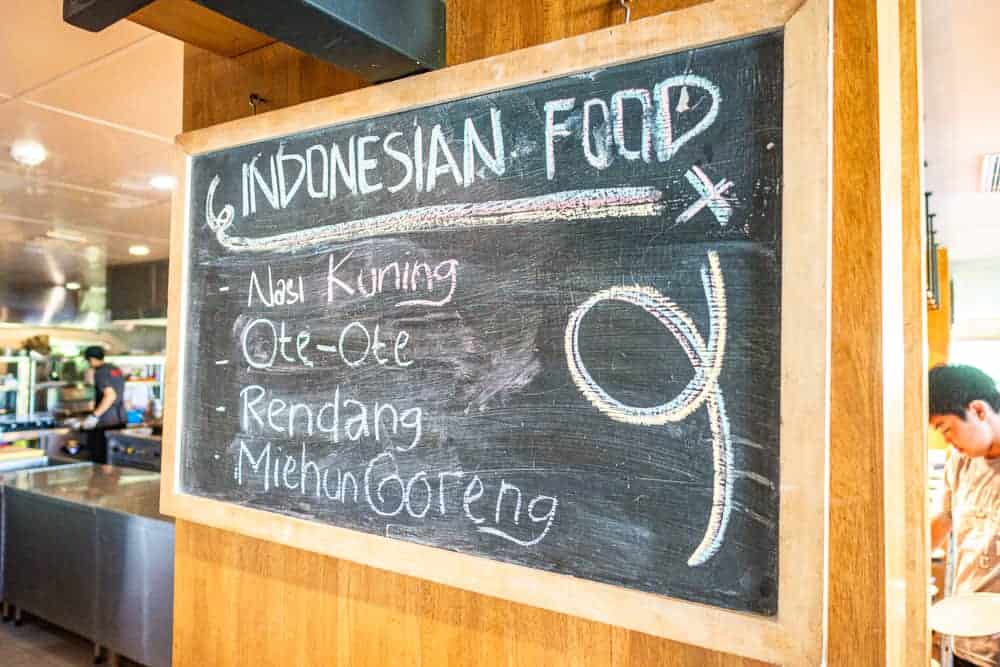 INDONESIAN FOOD
- Nasi Kuning
- Ote-Ote
- Rendang
- Miehun Goreng